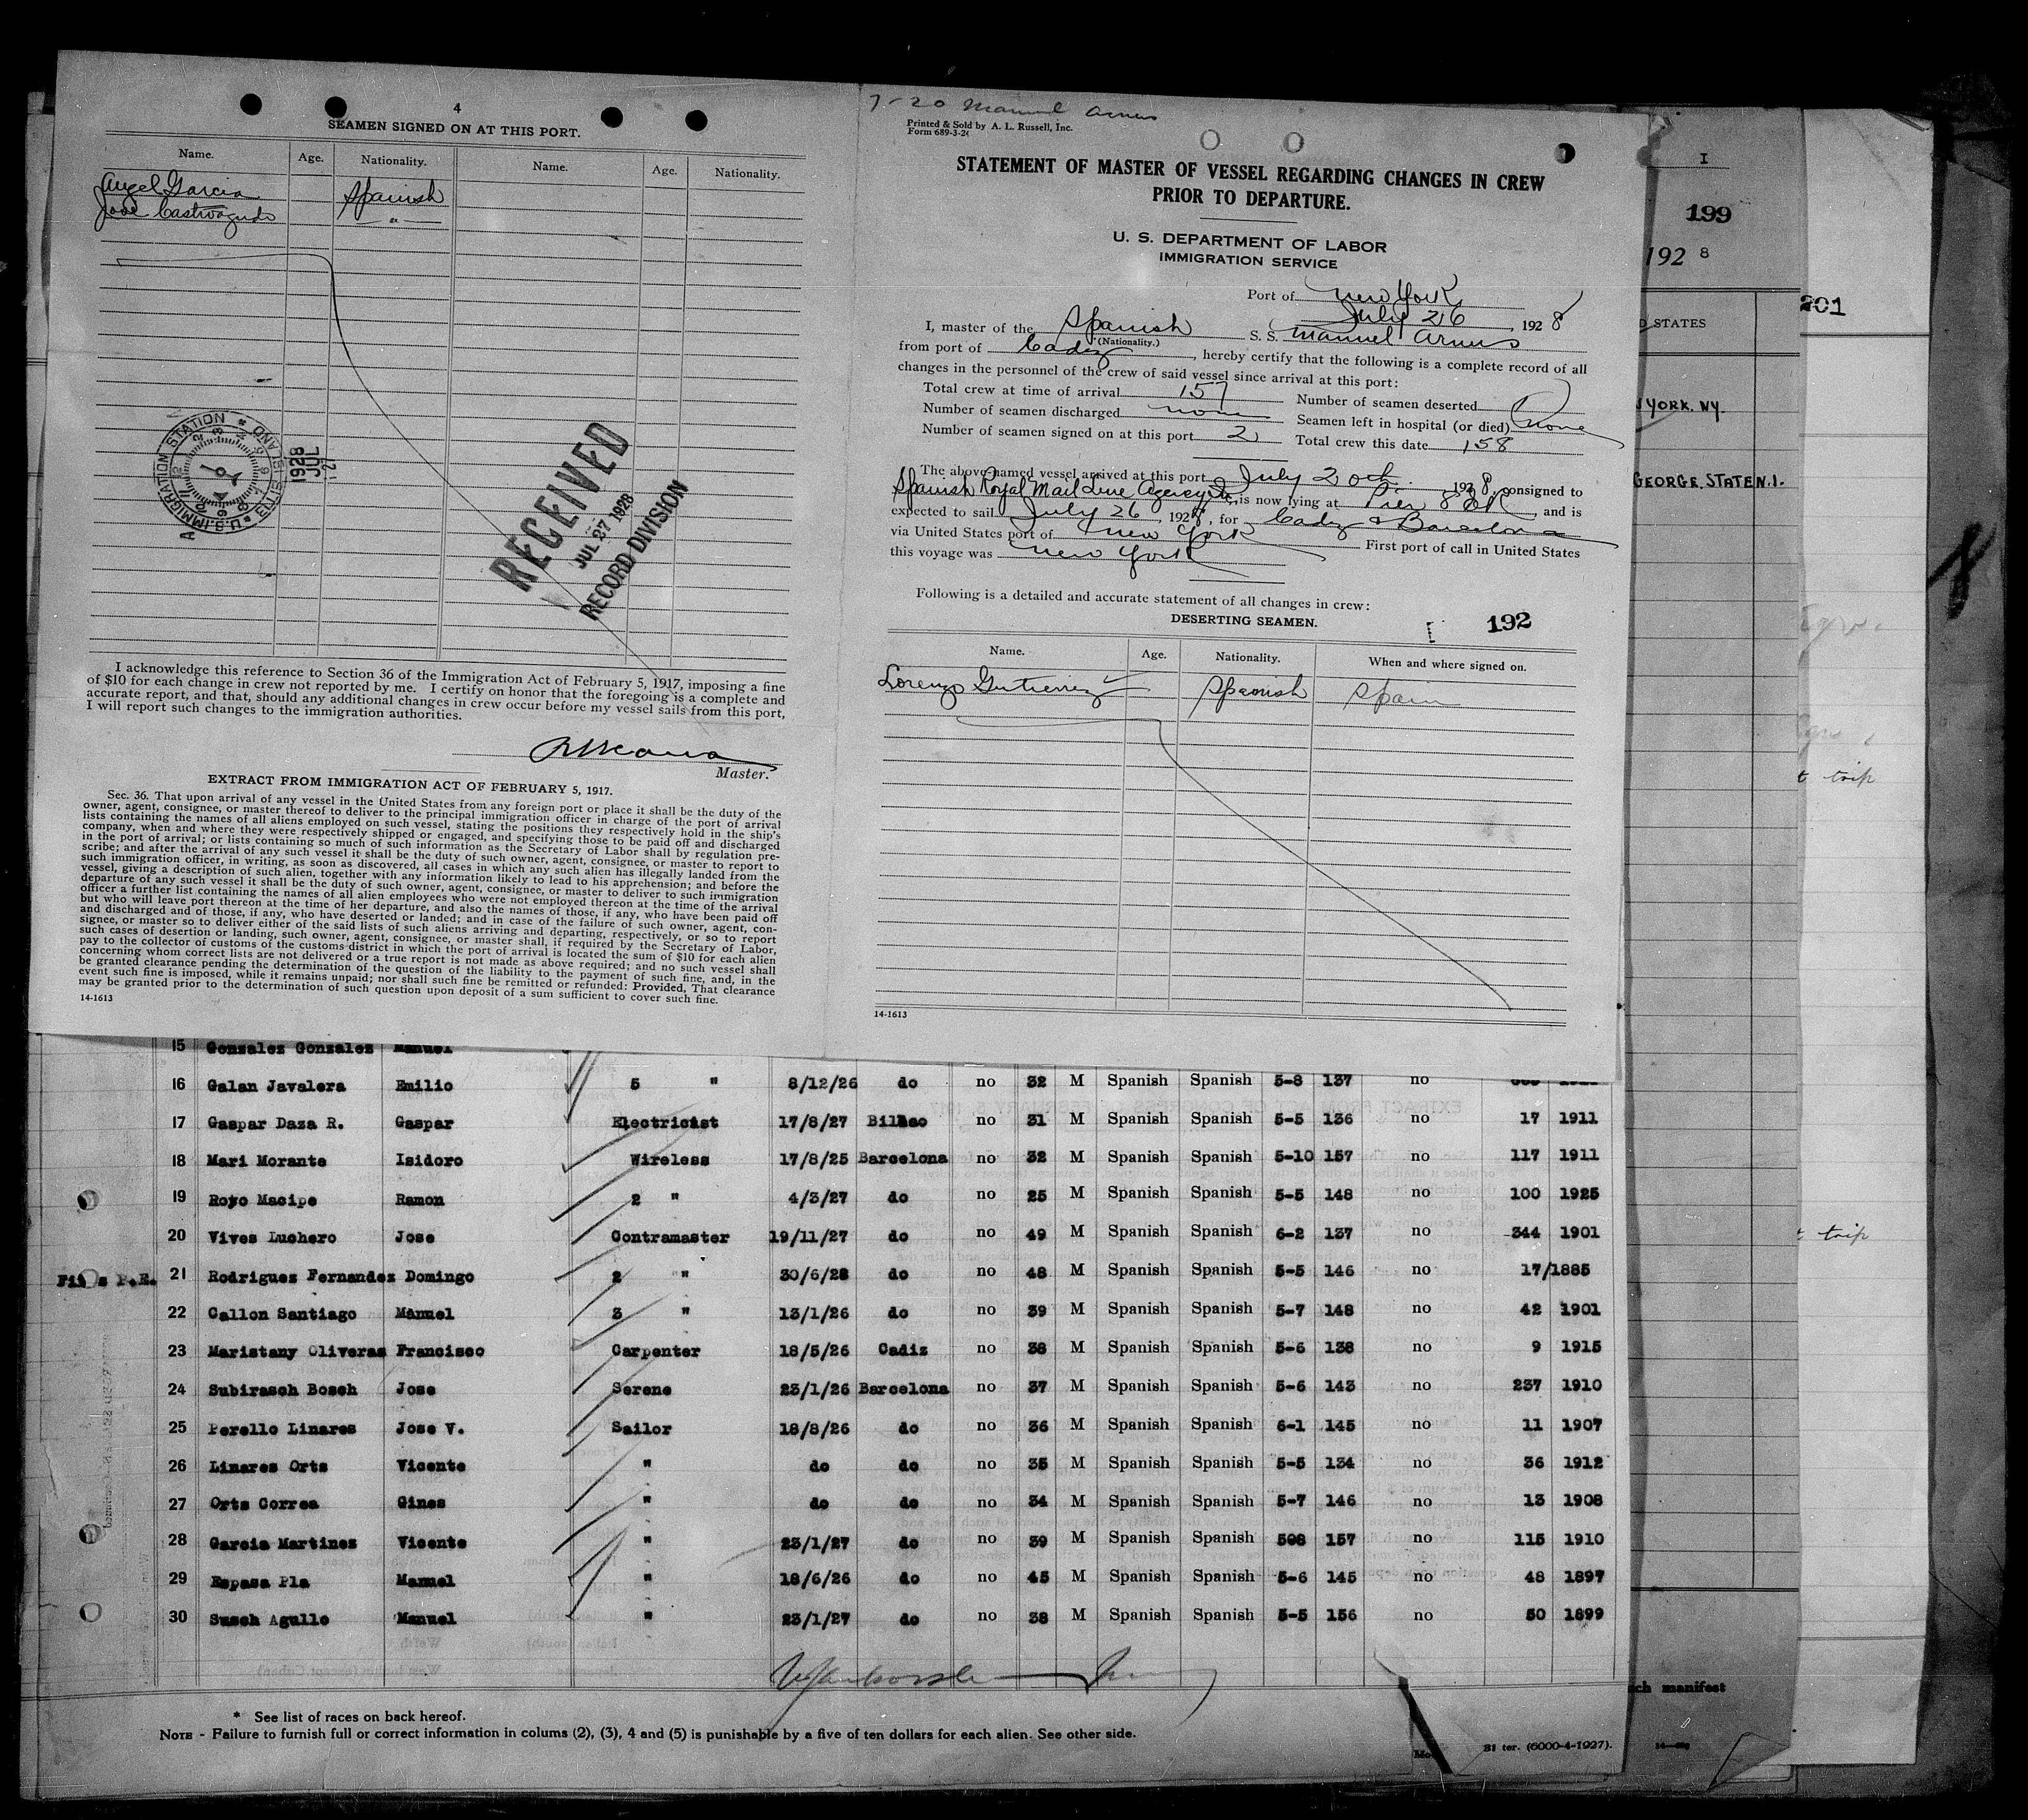 4
SEAMEN SIGNED ON AT THIS PORT.
Name. Age. Nationality. Name. Age. Nationality.
Angel Garcia Spanish
Jose "
U.S. IMMIGRATION STATION ELLIS ISLAND
1928 JUL 27
RECEIVED
JUL 27 1928
RECORD DIVISION
I acknowledge this reference to Section 36 of the Immigration Act of February 5, 1917, imposing a fine
of $10 for each change in crew not reported by me. I certify on honor that the foregoing is a complete and
accurate report, and that, should any additional changes in crew occur before my vessel sails from this port,
I will report such changes to the immigration authorities.
Master.
EXTRACT FROM IMMIGRATION ACT OF FEBRUARY 5, 1917.
Sec. 36. That upon arrival of any vessel in the United States from any foreign port or place it shall be the duty of the
owner, agent, consignee, or master thereof to deliver to the principal immigration officer in charge of the port of arrival
lists containing the names of all aliens employed on such vessel, stating the positions they respectively hold in the ship's
company, when and where they were respectively shipped or engaged, and specifying those to be paid off and discharged
in the port of arrival; or lists containing so much of such information as the Secretary of Labor shall by regulation pre-
scribe; and after the arrival of any such vessel it shall be the duty of such owner, agent, consignee, or master to report to
such immigration officer, in writing, as soon as discovered, all cases in which any such alien has illegally landed from the
vessel, giving a description of such alien, together with any information likely to lead to his apprehension; and before the
departure of any such vessel it shall be the duty of such owner, agent, consignee, or master to deliver to such immigration
officer a further list containing the names of all alien employees who were not employed thereon at the time of the arrival
but who will leave port thereon at the time of her departure, and also the names of those, if any, who have been paid off
and discharged and of those, if any, who have deserted or landed; and in case of the failure of such owner, agent, con-
signee, or master so to deliver either of the said lists of such aliens arriving and departing, respectively, or so to report
such cases of desertion or landing, such owner, agent, consignee, or master shall, if required by the Secretary of Labor,
pay to the collector of customs of the customs district in which the port of arrival is located the sum of $10 for each alien
concerning whom correct lists are not delivered or a true report is not made as above required; and no such vessel shall
be granted clearance pending the determination of the question of the liability to the payment of such fine, and, in the
event such fine is imposed, while it remains unpaid; nor shall such fine be remitted or refunded: Provided, That clearance
may be granted prior to the determination of such question upon deposit of a sum sufficient to cover such fine.
14-1613
7-20 Manuel Arnus
Printed & Sold by A. L. Russell, Inc.
Form 689-3-2
STATEMENT OF MASTER OF VESSEL REGARDING CHANGES IN CREW
PRIOR TO DEPARTURE.
U. S. DEPARTMENT OF LABOR
IMMIGRATION SERVICE
Port of New York
July 26, 1928
I, master of the Spanish S. S. Manuel Arnus
(Nationality.)
from port of Cadiz, hereby certify that the following is a complete record of all
changes in the personnel of the crew of said vessel since arrival at this port:
Total crew at time of arrival 157 Number of seamen deserted
Number of seamen discharged none Seamen left in hospital (or died) None
Number of seamen signed on at this port 2 Total crew this date 158
The above named vessel arrived at this port July 20th 1928, consigned to
Spanish Royal Mail Line Agency, is now lying at Pier 8 ER, and is
expected to sail July 26, 1928, for Cadiz & Barcelona
via United States port of New York First port of call in United States
this voyage was New York
Following is a detailed and accurate statement of all changes in crew:
DESERTING SEAMEN. 192
Name. Age. Nationality. When and where signed on.
Lorenzo Gutierrez Spanish Spain
14-1613
I
199
1928
STATES
YORK. NY.
GEORGE, STATEN.I.
201
trip
trip
15 Gonzalez Gonzales Manuel
16 Galan Javalera Emilio 5 " 8/12/26 do no 32 M Spanish Spanish 5-8 137 no
17 Gaspar Daza R. Gaspar Electricist 17/8/27 Bilbao no 31 M Spanish Spanish 5-5 136 no 17 1911
18 Mari Morante Isidoro Wireless 17/8/25 Barcelona no 32 M Spanish Spanish 5-10 157 no 117 1911
19 Royo Macipe Ramon 2 " 4/3/27 do no 25 M Spanish Spanish 5-5 148 no 100 1925
20 Vives Luchero Jose Contramaster 19/11/27 do no 49 M Spanish Spanish 6-2 137 no 344 1901
21 Rodrigues Fernandez Domingo 2 " 30/6/28 do no 48 M Spanish Spanish 5-5 146 no 17/1885
22 Gallon Santiago Manuel 3 " 13/1/26 do no 39 M Spanish Spanish 5-7 148 no 42 1901
23 Maristany Oliveras Francisco Carpenter 18/5/26 Cadiz no 38 M Spanish Spanish 5-6 138 no 9 1915
24 Subirasch Bosch Jose Serene 23/1/26 Barcelona no 37 M Spanish Spanish 5-6 143 no 237 1910
25 Perello Linares Jose V. Sailor 18/8/26 do no 36 M Spanish Spanish 6-1 145 no 11 1907
26 Linares Orts Vicente " do do no 35 M Spanish Spanish 5-5 134 no 36 1912
27 Orts Correa Gines " do do no 34 M Spanish Spanish 5-7 146 no 13 1908
28 Garcia Martines Vicente " 23/1/27 do no 39 M Spanish Spanish 508 157 no 115 1910
29 Espasa Pla Manuel " 18/6/26 do no 45 M Spanish Spanish 5-6 145 no 48 1897
30 Susch Agullo Manuel " 23/1/27 do no 38 M Spanish Spanish 5-5 156 no 50 1899
* See list of races on back hereof.
NOTE - Failure to furnish full or correct information in colums (2), (3), 4 and (5) is punishable by a five of ten dollars for each alien. See other side.
Bl ter. (6000-4-1927).
manifest